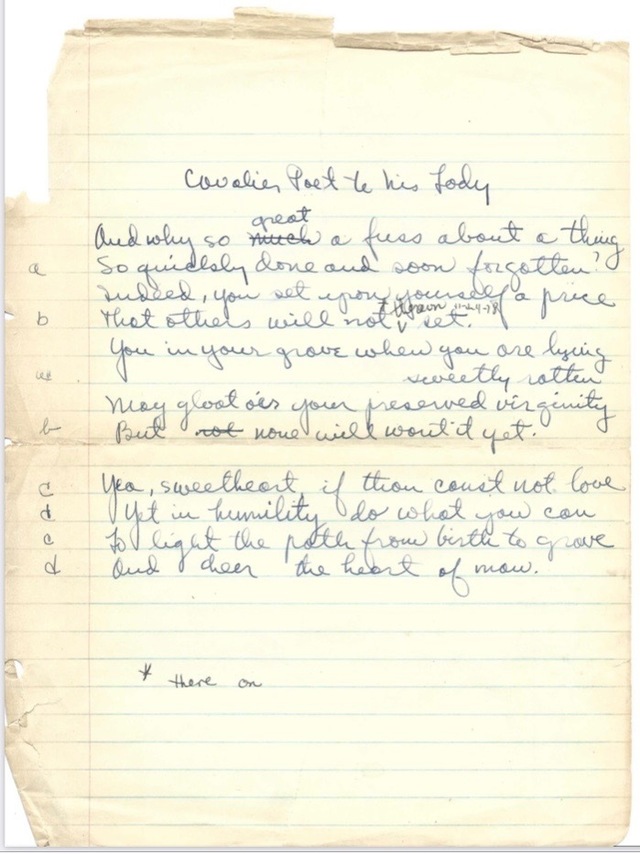 Cavalier Poet to his Lady
great
And why so much a fuss about a thing
a So quickly done and soon forgotten?
Indeed, you set upon yourself a price
* thereon
b That others will not set.
You in your grave when you are lying
a sweetly rotten
May gloat o'er your preserved virginity
b But not none will want it yet.
c Yea, sweetheart, if thou canst not love
d Yet in humility do what you can
c To light the path from birth to grave
d And cheer the heart of man.
* there on